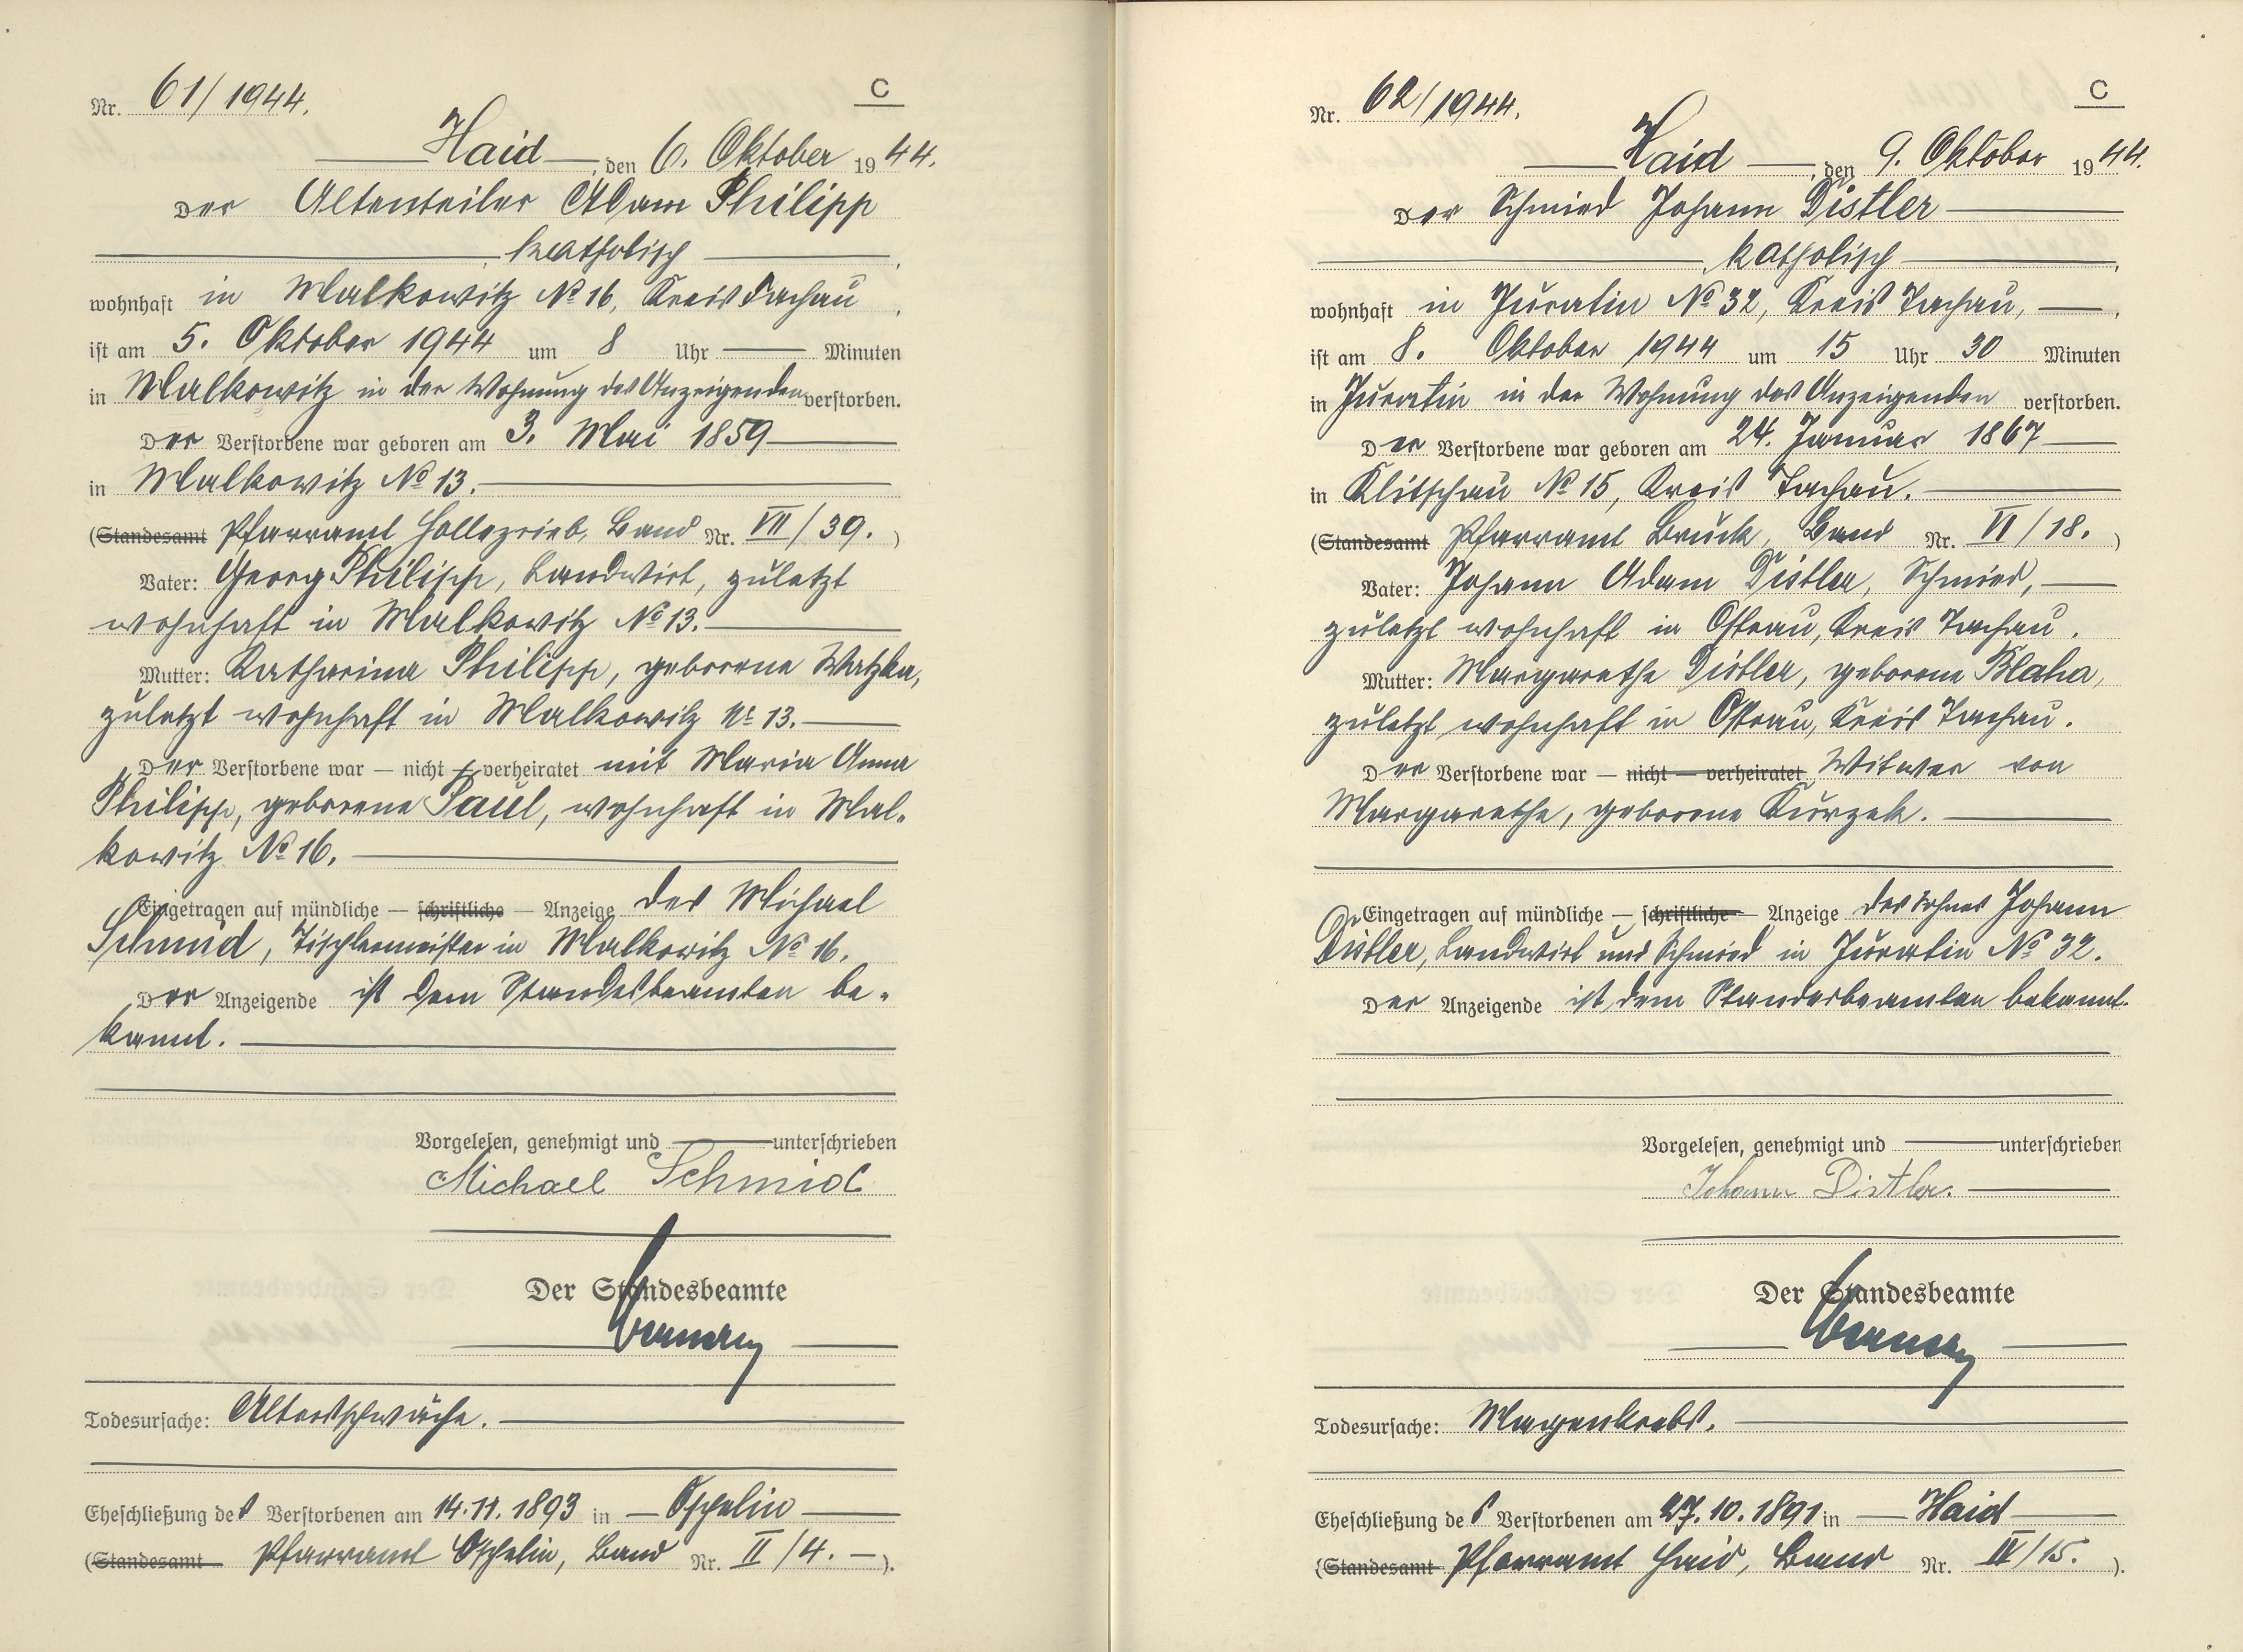 Nr. 61/1944.
C
Haid, den 6. Oktober 1944.
Der Altenteiler Adam Philipp
katholisch,
wohnhaft in Malkowitz No 16, Kreis Tachau,
ist am 5. Oktober 1944 um 8 Uhr — Minuten
in Malkowitz in der Wohnung des Anzeigenden verstorben.
Der Verstorbene war geboren am 3. Mai 1859
in Malkowitz No 13.
(Standesamt Pfarramt Hollezrieb, Band Nr. VII/39.)
Vater: Georg Philipp, Landwirt, zuletzt
wohnhaft in Malkowitz No 13.
Mutter: Katharina Philipp, geborene Watzka,
zuletzt wohnhaft in Malkowitz Nr 13.
Der Verstorbene war — nicht — verheiratet mit Maria Anna
Philipp, geborene Paul, wohnhaft in Mal-
kowitz No 16.
Eingetragen auf mündliche — schriftliche — Anzeige des Michael
Schmid, Tischlermeister in Malkowitz No 16.
Der Anzeigende ist dem Standesbeamten be-
kannt.
Vorgelesen, genehmigt und unterschrieben
Michael Schmid
Der Standesbeamte
Todesursache: Altersschwäche.
Eheschließung des Verstorbenen am 14.11.1893 in — Oschelin
(Standesamt Pfarramt Oschelin, Band Nr. II/4. —).
Nr. 62/1944.
C
Haid, den 9. Oktober 1944.
Der Schmied Johann Distler
katholisch,
wohnhaft in Juratin No 32, Kreis Tachau,
ist am 8. Oktober 1944 um 15 Uhr 30 Minuten
in Juratin in der Wohnung des Anzeigenden verstorben.
Der Verstorbene war geboren am 24. Januar 1867
in Klitschau No 15, Kreis Tachau.
(Standesamt Pfarramt Bruck, Band Nr. VI/18.)
Vater: Johann Adam Distler, Schmied,
zuletzt wohnhaft in Ostrau, Kreis Tachau.
Mutter: Margarethe Distler, geborene Blaha,
zuletzt wohnhaft in Ostrau, Kreis Tachau.
Der Verstorbene war — nicht — verheiratet Witwer von
Margarethe, geborene Kurzek.
Eingetragen auf mündliche — schriftliche — Anzeige des Sohnes Johann
Distler, Landwirt und Schmied in Juratin No 32.
Der Anzeigende ist dem Standesbeamten bekannt.
Vorgelesen, genehmigt und unterschrieben
Johann Distler.
Der Standesbeamte
Todesursache: Magenkrebs.
Eheschließung des Verstorbenen am 27.10.1891 in — Haid
(Standesamt Pfarramt Haid, Band Nr. IV/15.).